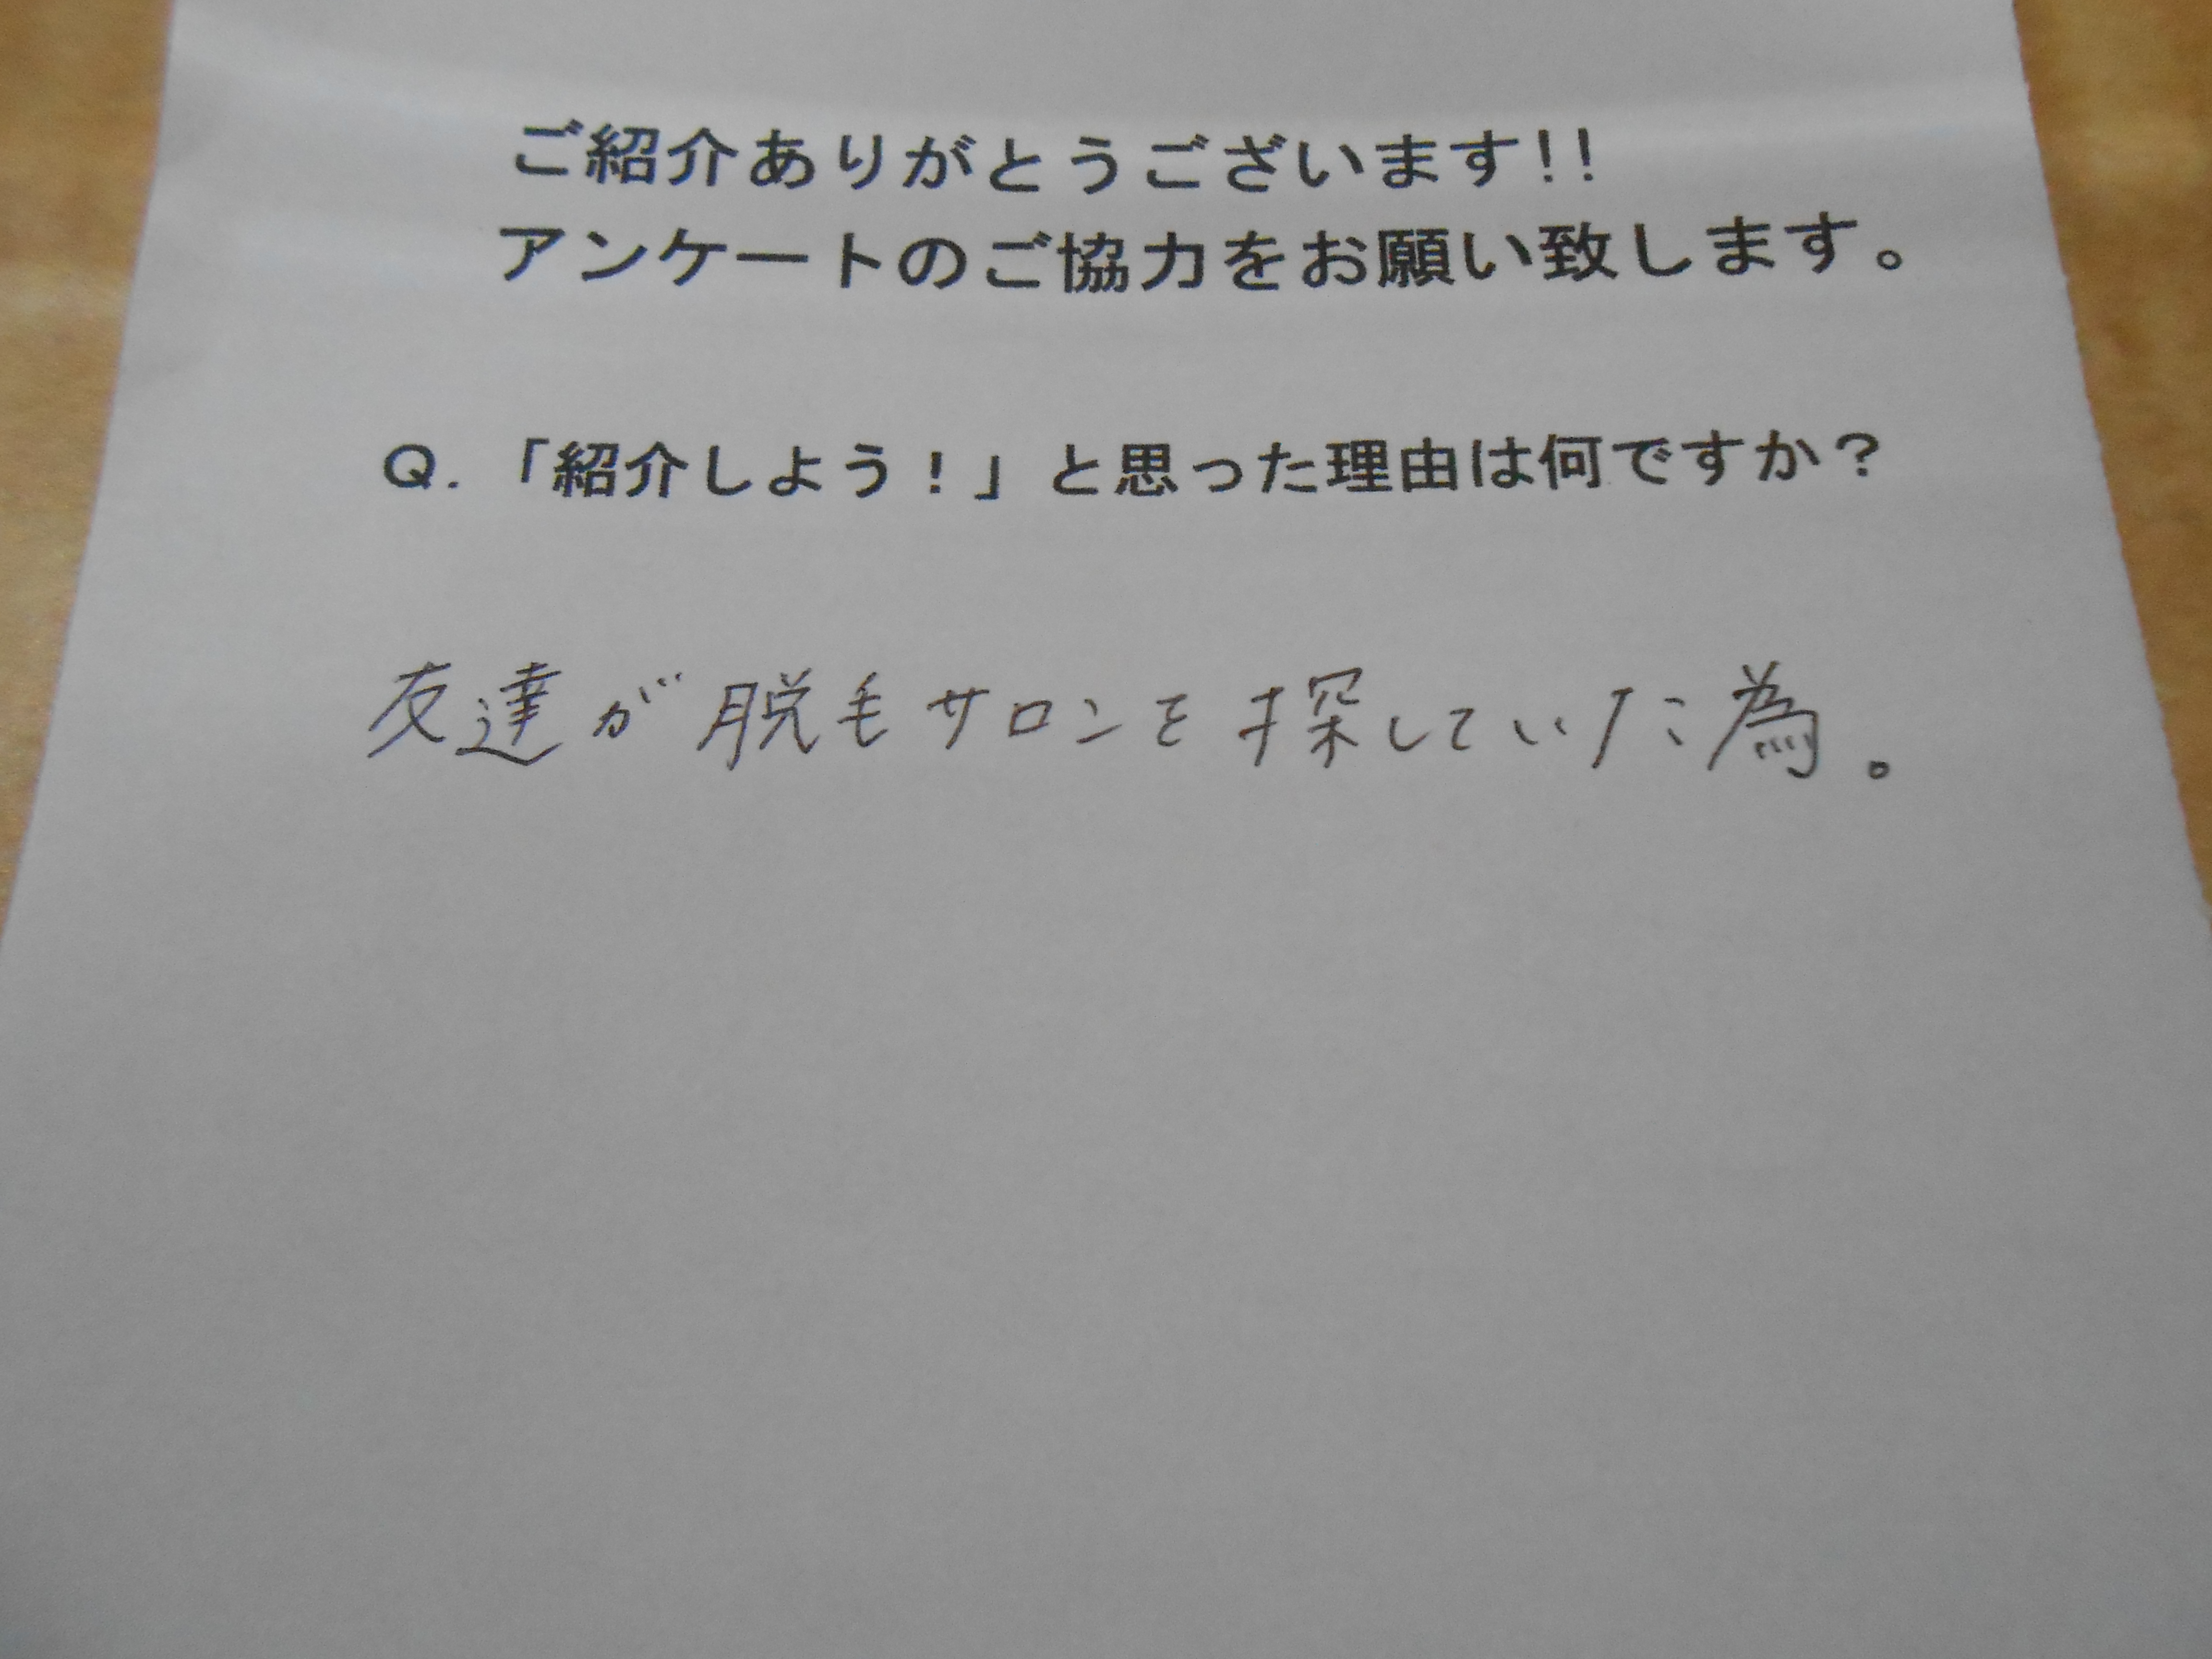 ご紹介ありがとうございます!!
アンケートのご協力をお願い致します。
Q.「紹介しよう!」と思った理由は何ですか?
友達が脱毛サロンを探していた為。